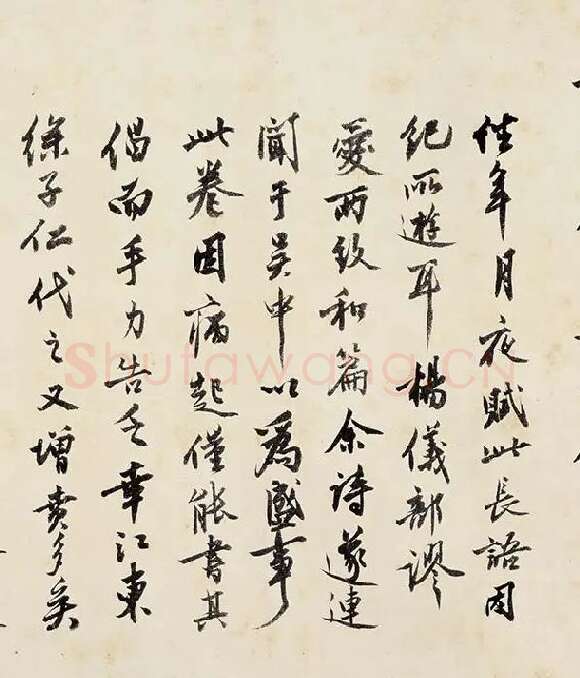 往年月夜賦此長語因
紀所遊耳楊儀部謬
愛而致和篇余詩遂連
聞于吳中以為盛事
此卷因病起僅能書其
倡而手力告乏幸江東
徐子仁代之又增賁多矣
Shufawang.CN